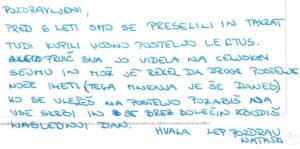 POZDRAVLJENI,
PRED 6 LETI SMO SE PRESELILI IN TAKRAT
TUDI KUPILI VODNO POSTELJO LECTUS.
PRVIČ SVA JO VIDELA NA CELJSKEM
SEJMU IN MOŽ JE REKEL DA DRUGE POSTELJE
NOČE IMETI (TEGA MNENJA JE ŠE DANES)
KO SE VLEŽEŠ NA POSTELJO POZABIŠ NA
VSE SKRBI IN SE BREZ BOLEČIN ZBUDIŠ
NASLEDNJI DAN. HVALA LEP POZDRAV
NATAŠA